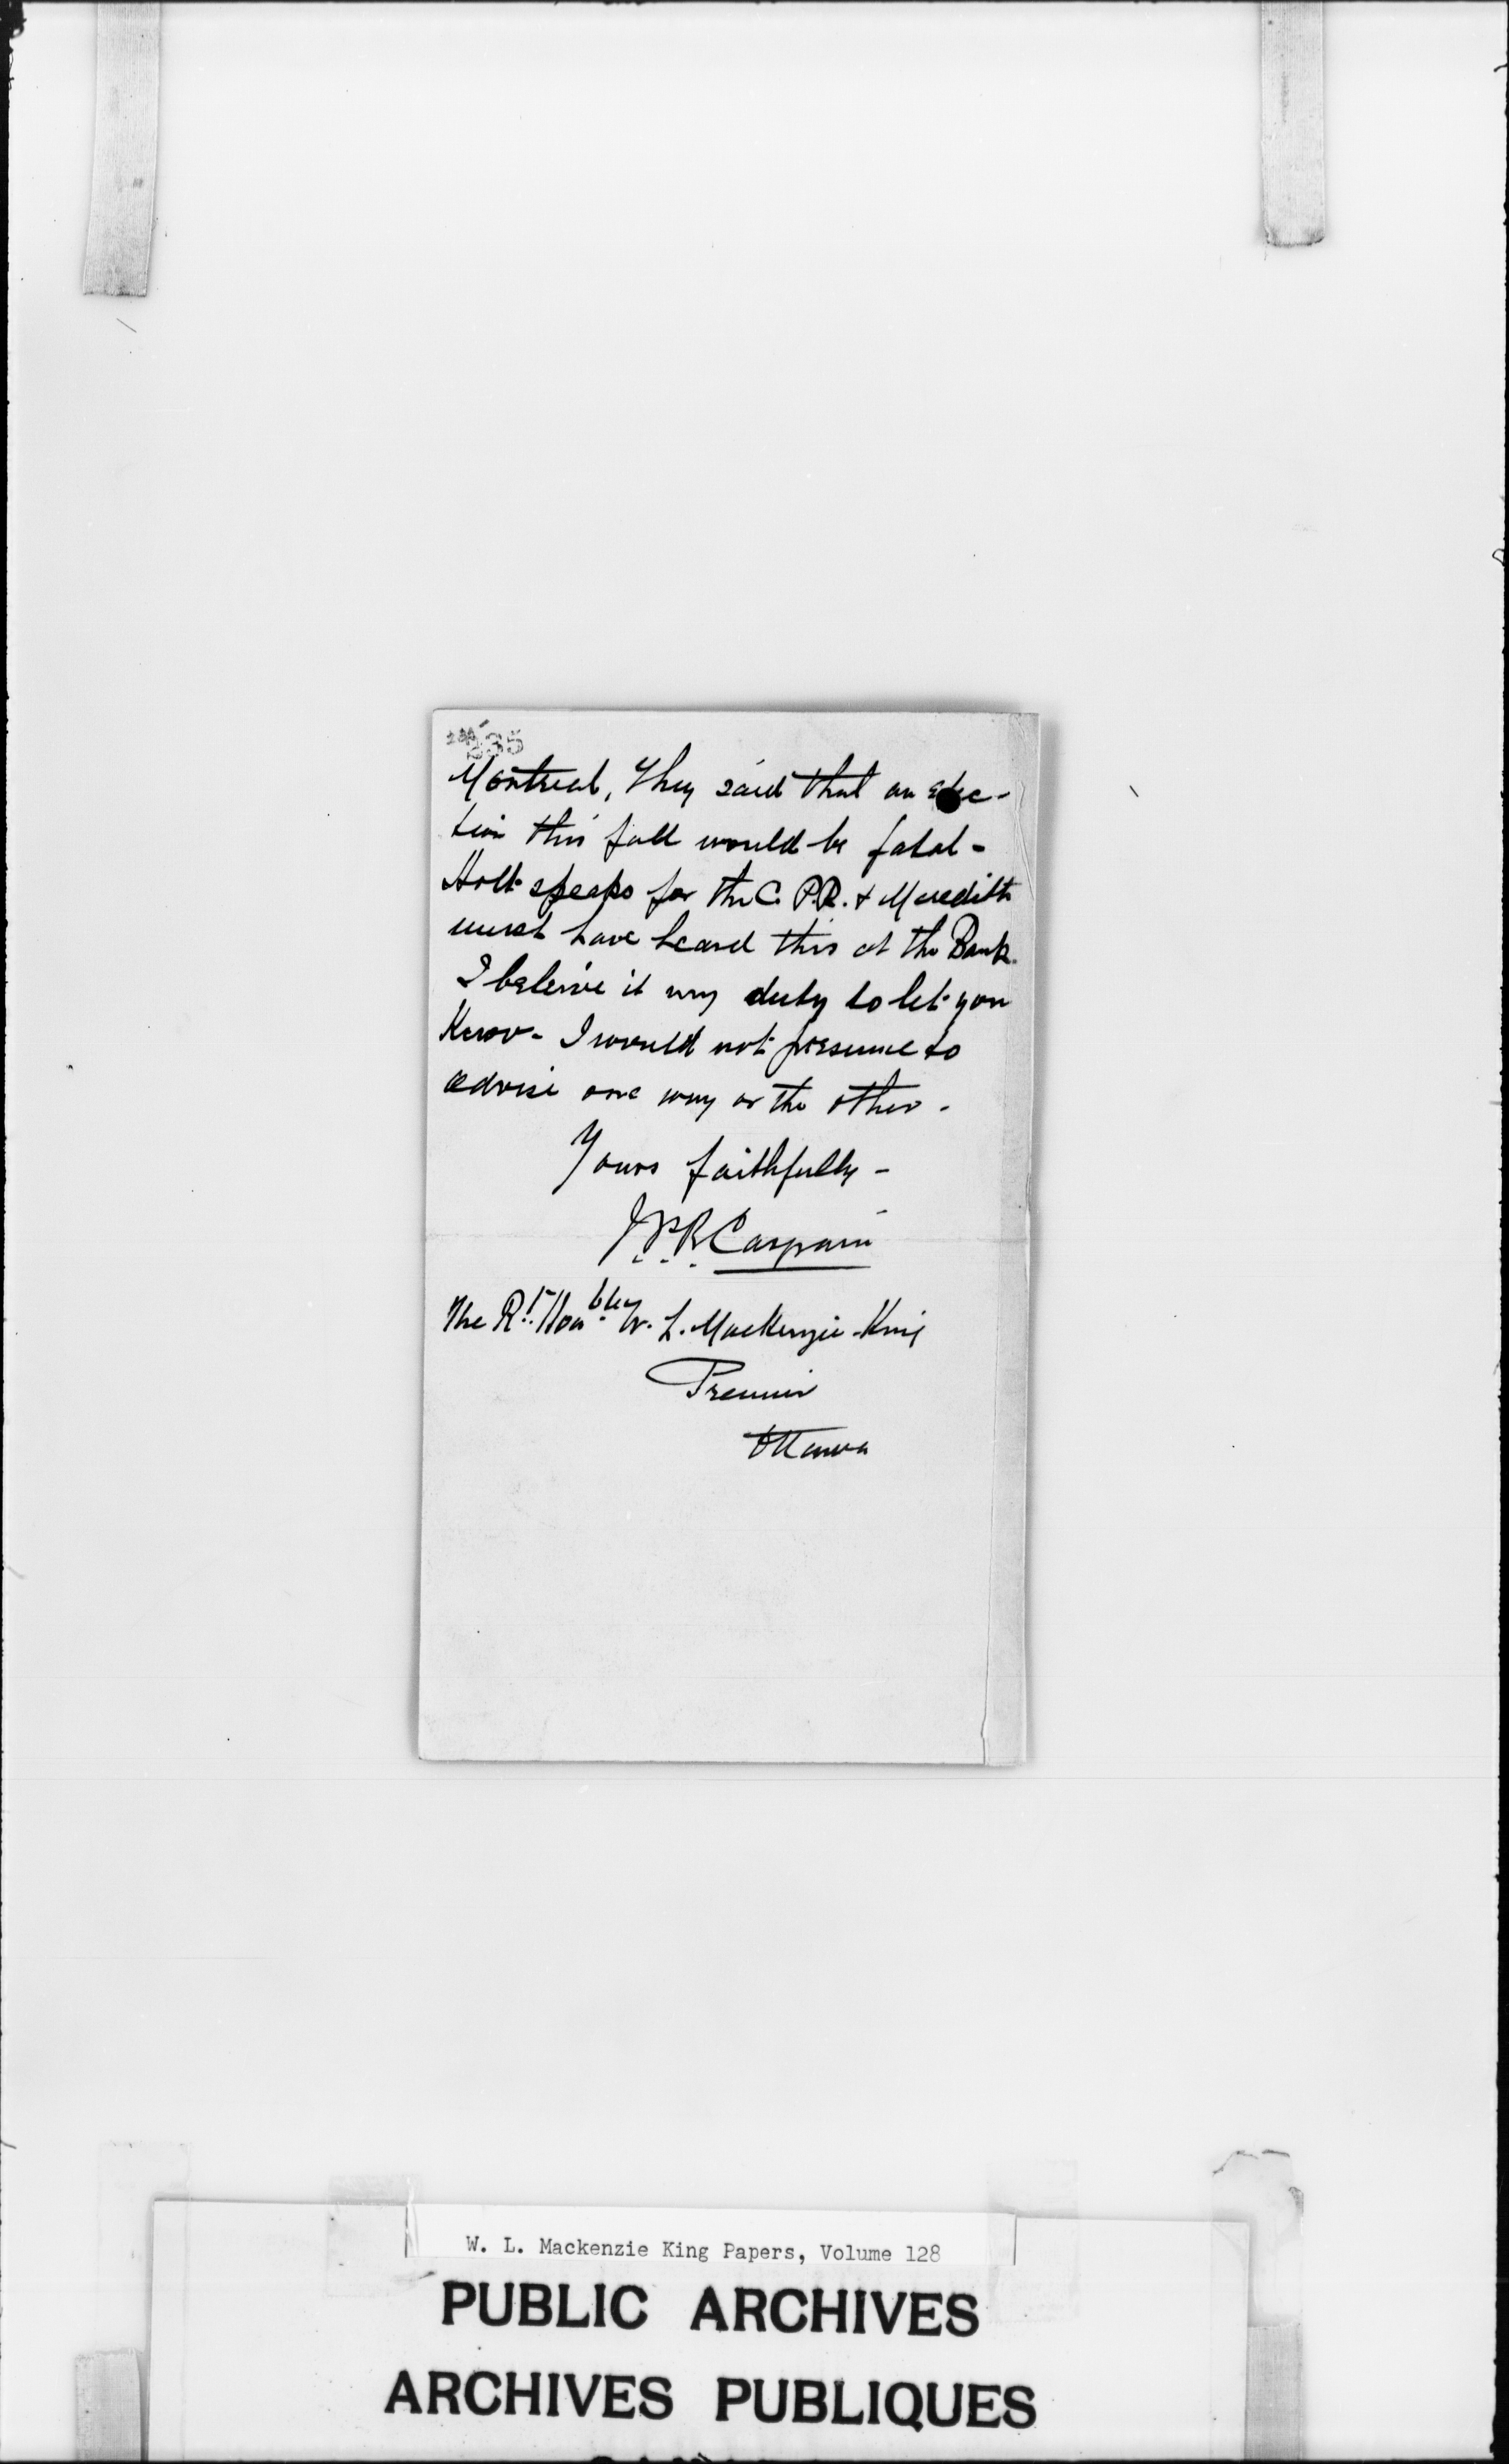 235
Montreal, They said that an elec-
tion this fall would be fatal -
Holt speaks for the C. P.R. + Meredith
must have heard this at the Bank.
I beleive it my duty to let you
Know - I would not presume to
advise one way or the other -
Yours faithfully -
J P B Casgrain
The Rt. Honble W. L. MacKenzie-King
Premier
Ottawa
W. L. Mackenzie King Papers, Volume 128
PUBLIC ARCHIVES
ARCHIVES PUBLIQUES